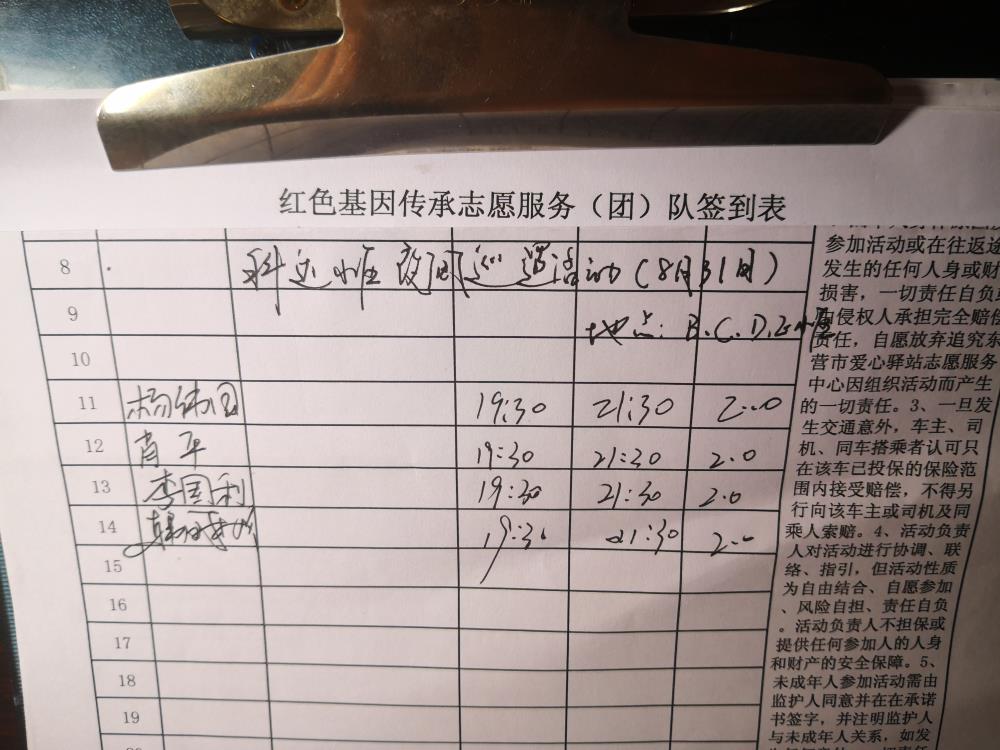 红色基因传承志愿服务（团）队签到表
8
活动（8月31日）
9
地点：B.C.D.E
10
11 杨 19:30 21:30 2.0
12 肖平 19:30 21:30 2.0
13 李国利 19:30 21:30 2.0
14 19:30 21:30 2.0
15
16
17
18
19
参加活动或在往返途
发生的任何人身或财
损害，一切责任自负
由侵权人承担完全赔偿
责任，自愿放弃追究东
营市爱心驿站志愿服务
中心因组织活动而产生
的一切责任。3、一旦发
生交通意外，车主、司
机、同车搭乘者认可只
在该车已投保的保险范
围内接受赔偿，不得另
行向该车主或司机及同
乘人索赔。4、活动负责
人对活动进行协调、联
络、指引，但活动性质
为自由结合、自愿参加
、风险自担、责任自负
。活动负责人不担保或
提供任何参加人的人身
和财产的安全保障。5、
未成年人参加活动需由
监护人同意并在在承诺
书签字，并注明监护人
与未成年人关系，如发